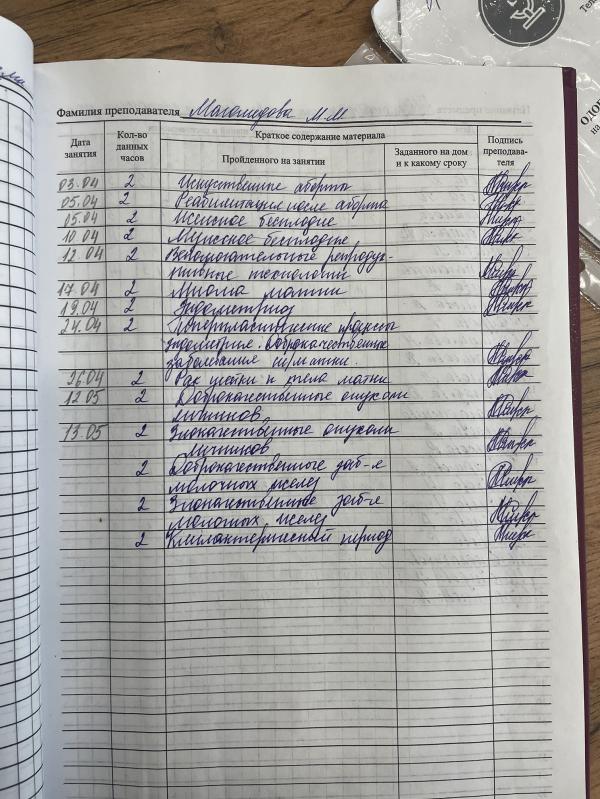 Фамилия преподавателя Магомедова М.М
Дата занятия
Кол-во данных часов
Краткое содержание материала
Пройденного на занятии
Заданного на дом и к какому сроку
Подпись преподава-теля
03.04 2 Искуственные аборты
05.04 2 Реабилитация после аборта
05.04 2 Женское бесплодие
10.04 2 Мужское бесплодие
12.04 2 Вспомогательные репродук-
тивные технологии
17.04 2 Миома матки
19.04 2 Эндометриоз
24.04 2 Гиперпластические процессы
эндометрия. Доброкачественные
заболевания ш/матки.
26.04 2 Рак шейки и тела матки
12.05 2 Доброкачественные опухоли
яичников
13.05 2 Злокачественные опухоли
яичников
2 Доброкачественные заб-я
молочных желез
2 Злокачественные заб-я
молочных желез
2 Климактерический период